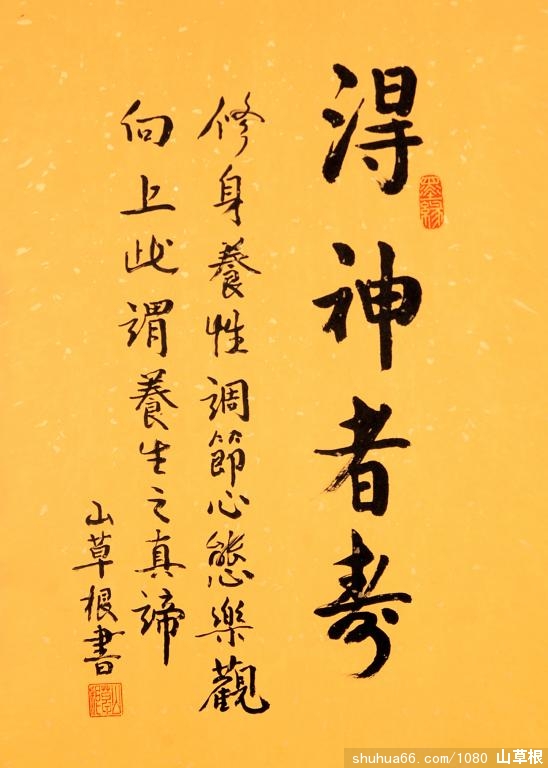 得神者寿
修身養性調節心態樂觀
向上此謂養生之真諦
山草根書
shuhua66.com/1080 山草根